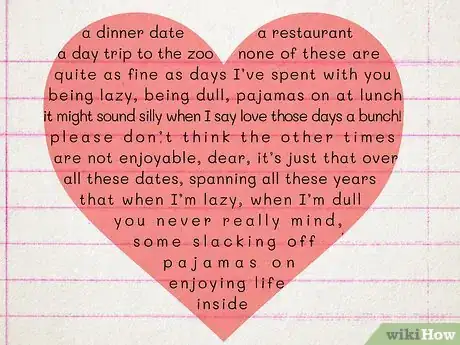 a dinner date a restaurant
a day trip to the zoo none of these are
quite as fine as days I've spent with you
being lazy, being dull, pajamas on at lunch
it might sound silly when I say love those days a bunch!
please don't think the other times
are not enjoyable, dear, it's just that over
all these dates, spanning all these years
that when I'm lazy, when I'm dull
you never really mind,
some slacking off
pajamas on
enjoying life
inside
wikiHow